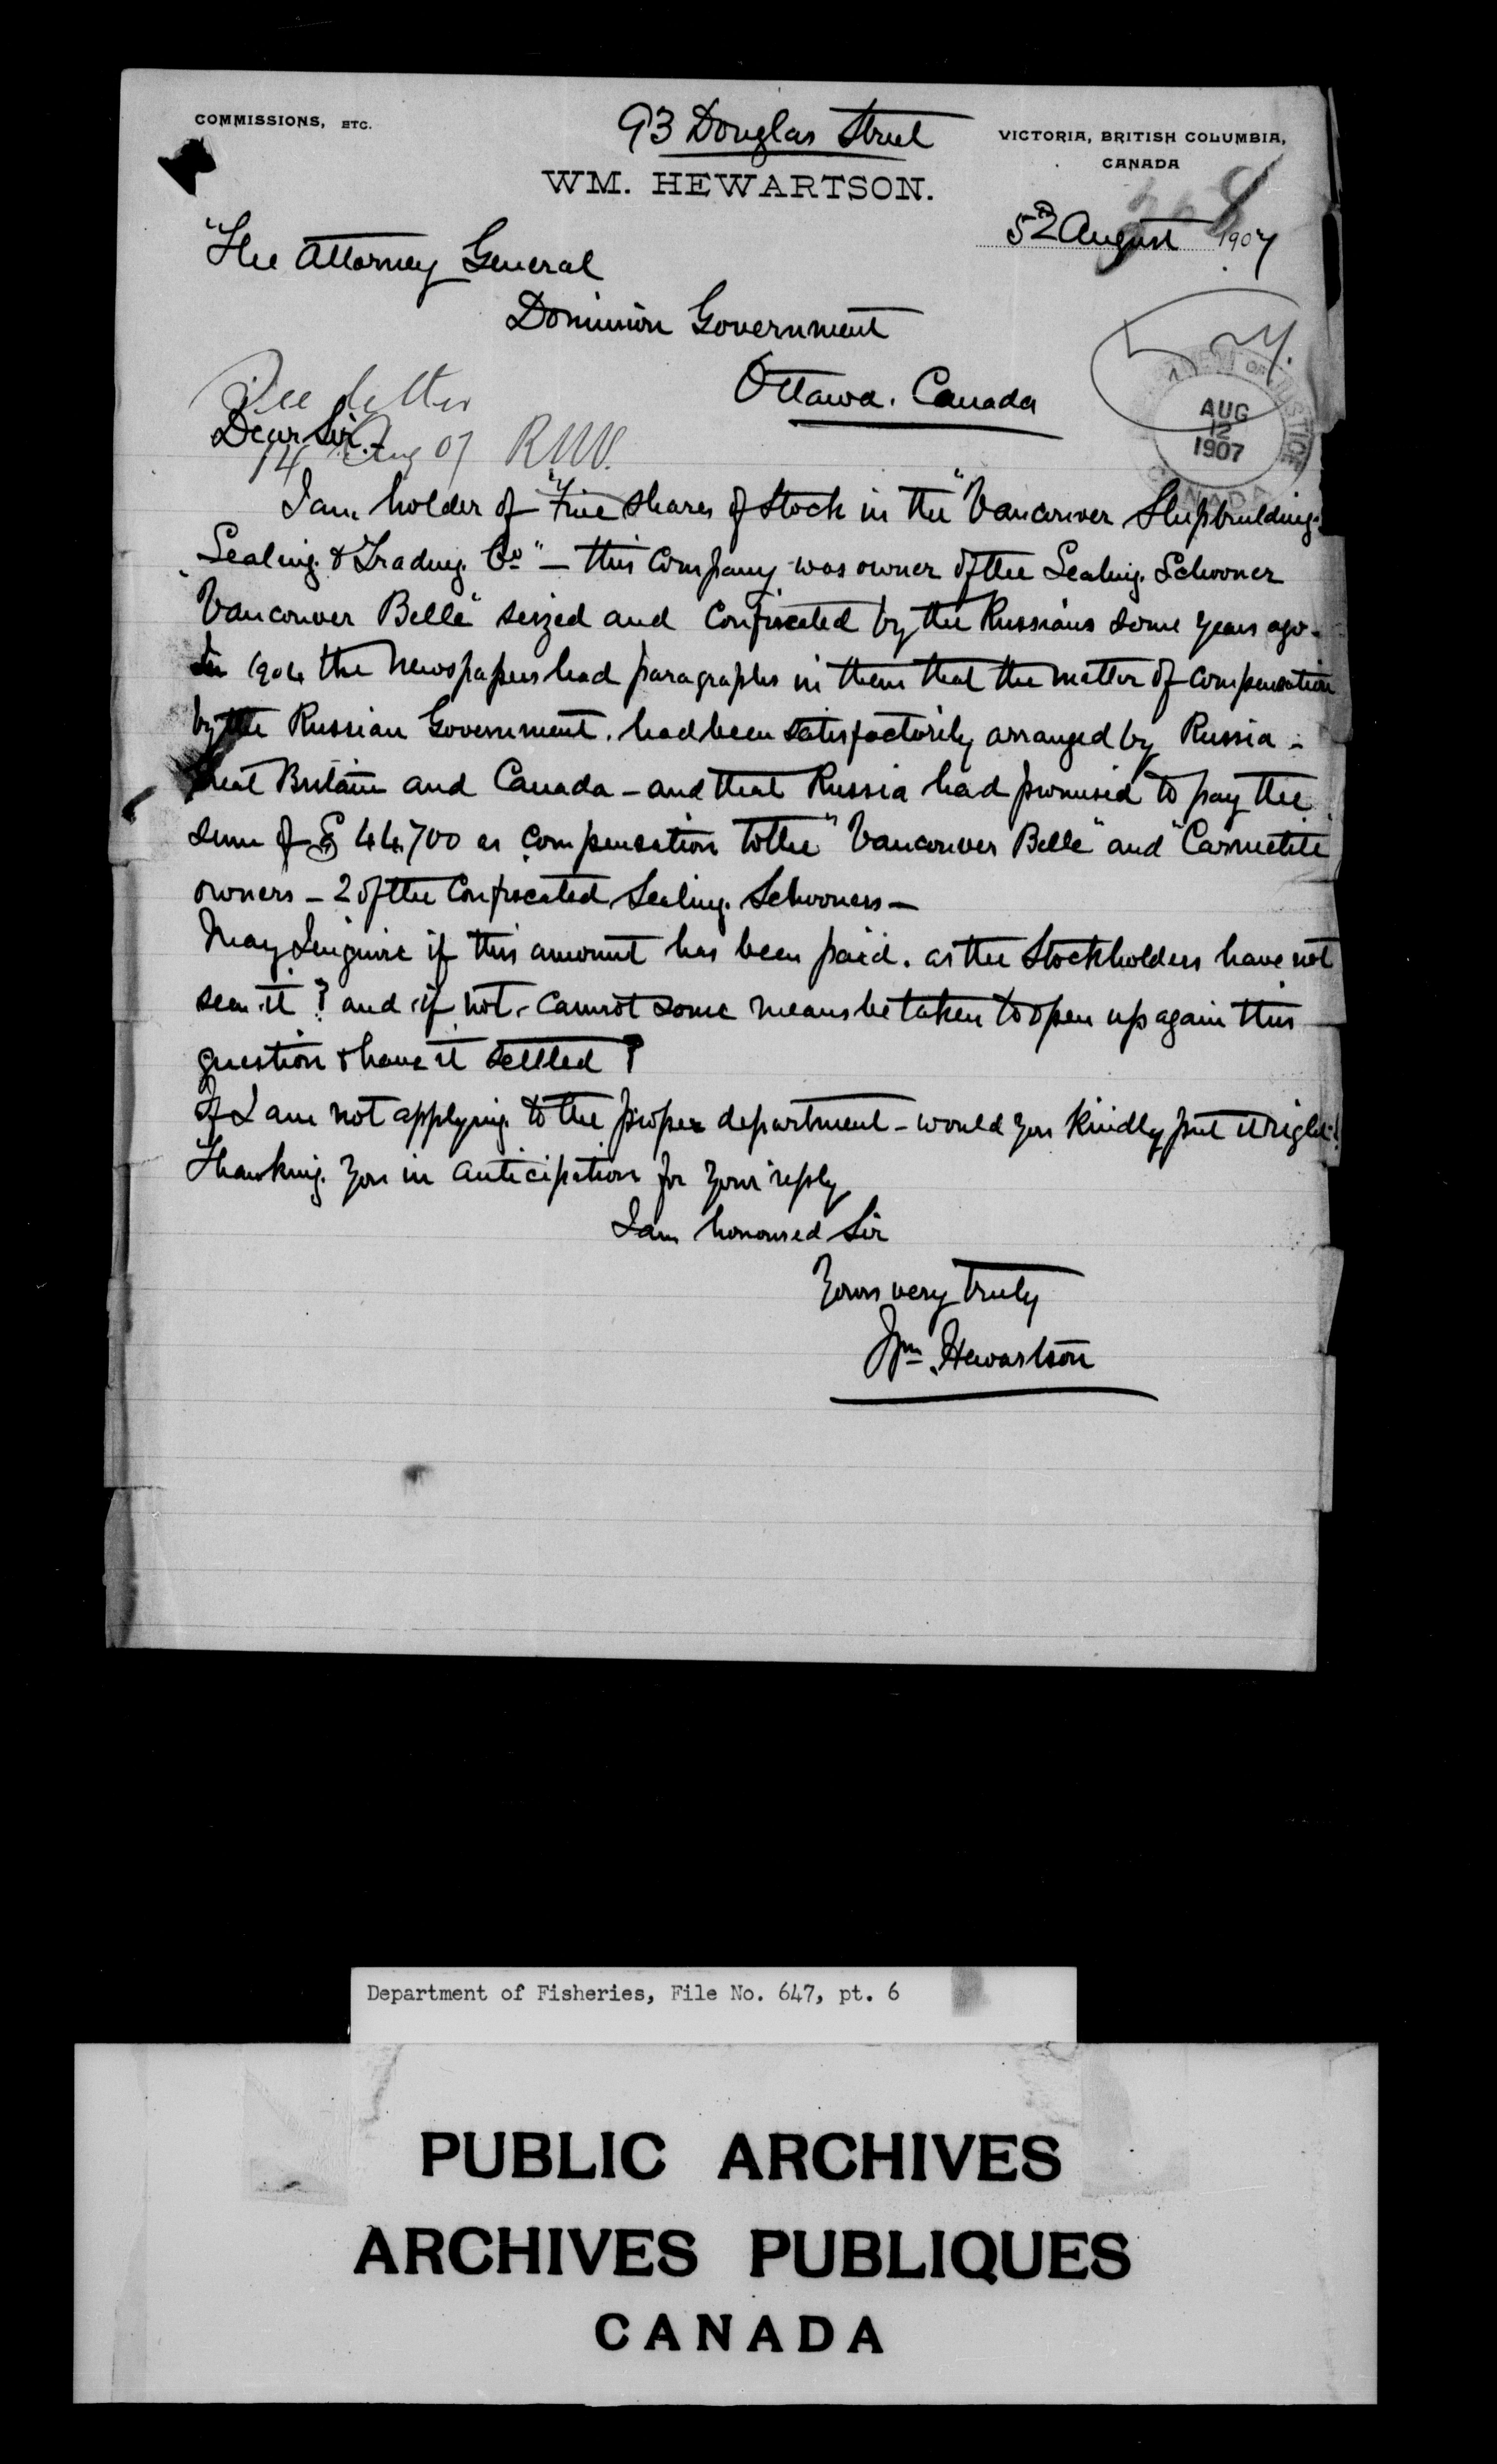 COMMISSIONS, ETC.
93 Douglas Street
VICTORIA, BRITISH COLUMBIA,
CANADA
WM. HEWARTSON.
5th August 1907
The Attorney General
Dominion Government
Ottawa. Canada
See letter
14 Aug 07 R
DEPARTMENT OF JUSTICE
AUG
12
1907
CANADA
Dear Sir.
I am holder of "Five shares of Stock in the "Vancouver Shipbuilding.
Sealing. & Trading. Co" — this Company was owner of the Sealing. Schooner
"Vancouver Belle" seized and Confiscated by the Russians some years ago -
In 1904 the Newspapers had paragraphs in them that the matter of compensation
by the Russian Government. had been satisfactorily arranged by Russia -
Great Britain and Canada - and that Russia had promised to pay the
sum of $ 44,700 as compensation to the "Vancouver Belle" and "Carmolite
owners - 2 of the Confiscated Sealing. Schooners —
May I enquire if this amount has been paid. as the Stockholders have not
seen it? and if not. cannot some means be taken to open up again this
question & have it settled?
If I am not applying to the proper department - would you kindly put it right!
Thanking you in anticipation for your reply
I am honoured Sir
Yours very truly
Wm. Hewartson
Department of Fisheries, File No. 647, pt. 6
PUBLIC ARCHIVES
ARCHIVES PUBLIQUES
CANADA